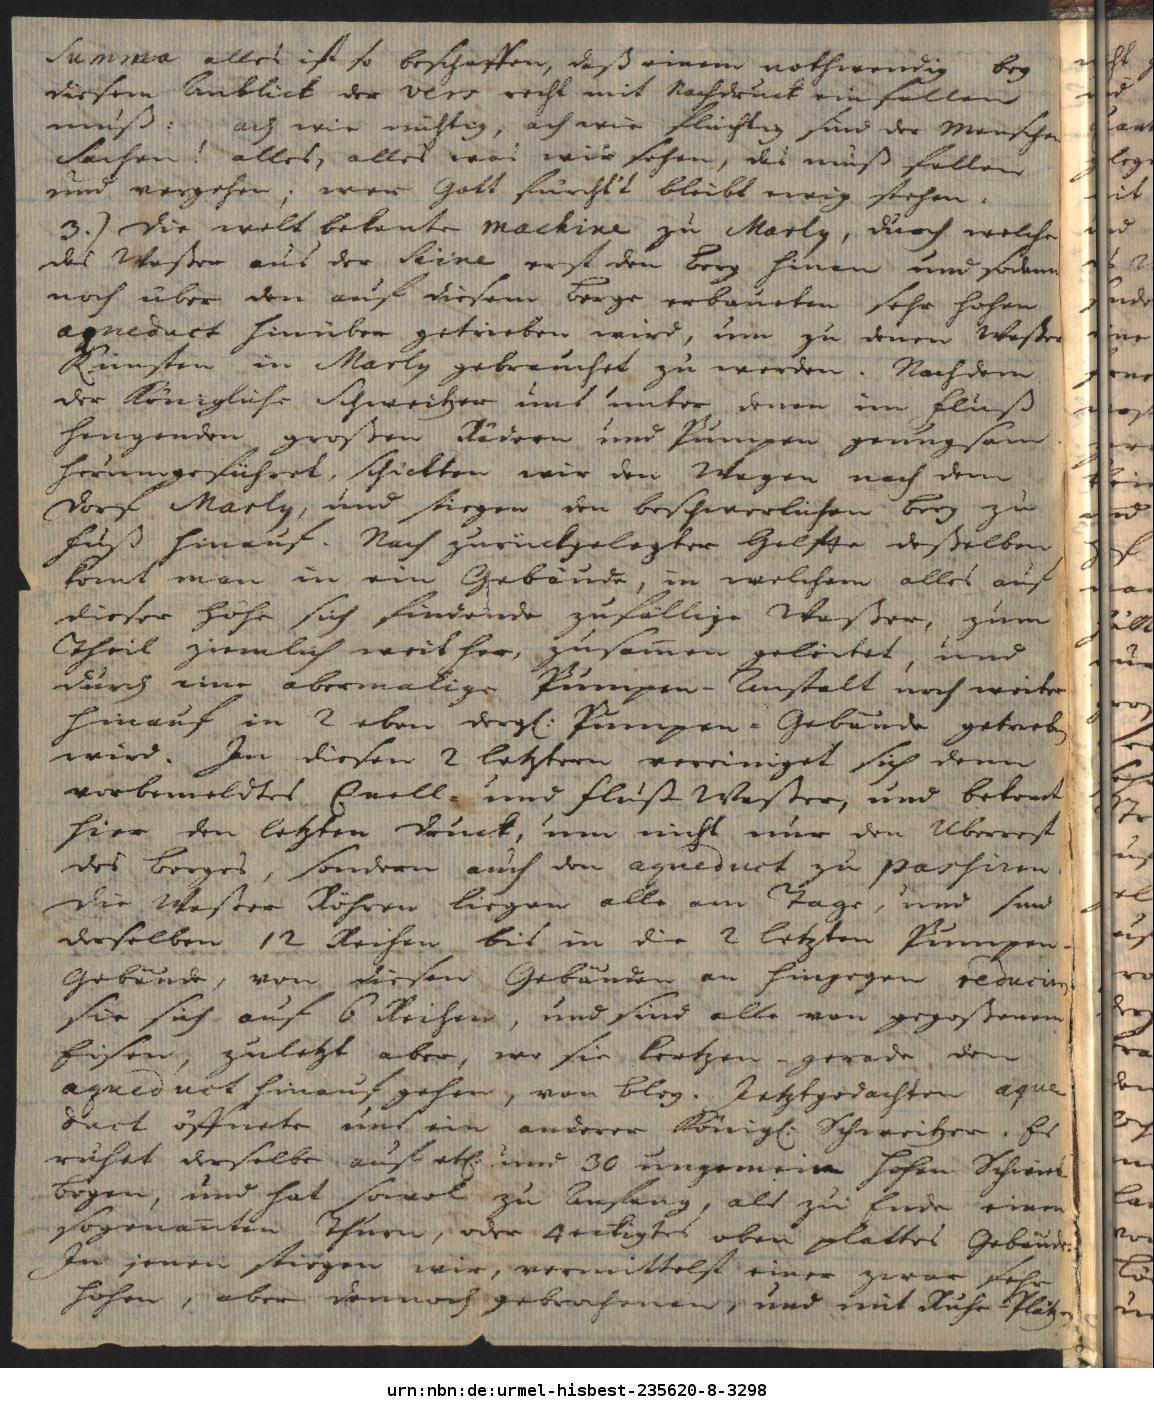 Summa alles ist so beschaffen, daß einem nothwendig bey
diesem Anblick der vers recht mit Nachdruck einfallen
muß: ach wie nichtig, ach wie flüchtig sind der Menschen
Sachen! alles, alles was wir sehen, das muß fallen
und vergehen; wer Gott fürcht't bleibt ewig stehen.
3.) Die welt bekante machine zu Marly, durch welche
das Waßer aus der Seine erst den Berg hinan und sodann
noch über den auf diesem Berge erbaueten sehr hohen
aqueduct hinüber getrieben wird, um zu denen Waßer
Künsten in Marly gebrauchet zu werden. Nachdem
der Königliche Schweitzer uns unter denen im Fluß
hengenden großen Rädern und Pumpen genungsam
herumgeführet, schickten wir den Wagen nach dem
Dorf Marly, und stiegen den beschwerlichen Berg zu
Fuß hinauf. Nach zurückgelegter Helfte deßelben
komt man in ein Gebäude, in welchem alles auf
dieser Höhe sich findende zufällige Waßer, zum
Theil ziemlich weit her, zusam̄en geleitet, und
durch eine abermalige Pumpen-Anstalt noch weiter
hinauf in 2 eben dergl: Pumpen-Gebäude getrieben
wird. In diesen 2 letztern vereiniget sich denn
vorbemeldtes Quell- und Fluß-Waßer, und bekomt
hier den letzten Druck, um nicht nur den Uberrest
des Berges, sondern auch den aqueduct zu passiren.
Die Waßer Röhren liegen alle am Tage, und sind
derselben 12 Reihen bis in die 2 letzten Pumpen-
Gebäude, von diesen Gebäuden an hingegen reduciren
sie sich auf 6 Reihen, und sind alle von gegoßenem
Eisen, zuletzt aber, wo sie kertzen-gerade den
aqueduct hinauf gehen, von Bley. Jetztgedachten aque
duct öffnete uns ein anderer Königl: Schweitzer. Es
ruhet derselbe auf etl: und 30 ungemein hohen Schwib
bogen, und hat sowol zu Anfang, als zu Ende einen
sogenan̄ten Thurn, oder 4eckigtes oben plattes Gebäude.
In jenen stiegen wir, vermittelst einer zwar sehr
hohen, aber dennoch gebrochenen, und mit Ruhe-Plätzen
urn:nbn:de:urmel-hisbest-235620-8-3298